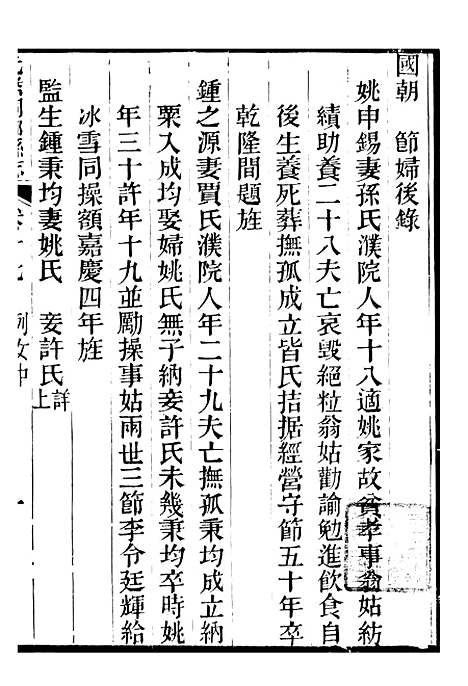 國朝　節婦後錄
姚申錫妻孫氏濮院人年十八適姚家故貧孝事翁姑紡
績助養二十八夫亡哀毀絕粒翁姑勸諭勉進飲食自
後生養死葬撫孤成立皆氏拮据經營守節五十年卒
乾隆間題旌
鍾之源妻賈氏濮院人年二十九夫亡撫孤秉均成立納
粟入成均娶婦姚氏無子納妾許氏未幾秉均卒時姚
年三十許年十九並勵操事姑兩世三節李令廷輝給
冰雪同操額嘉慶四年旌
監生鍾秉均妻姚氏　妾許氏詳上
列女中　一